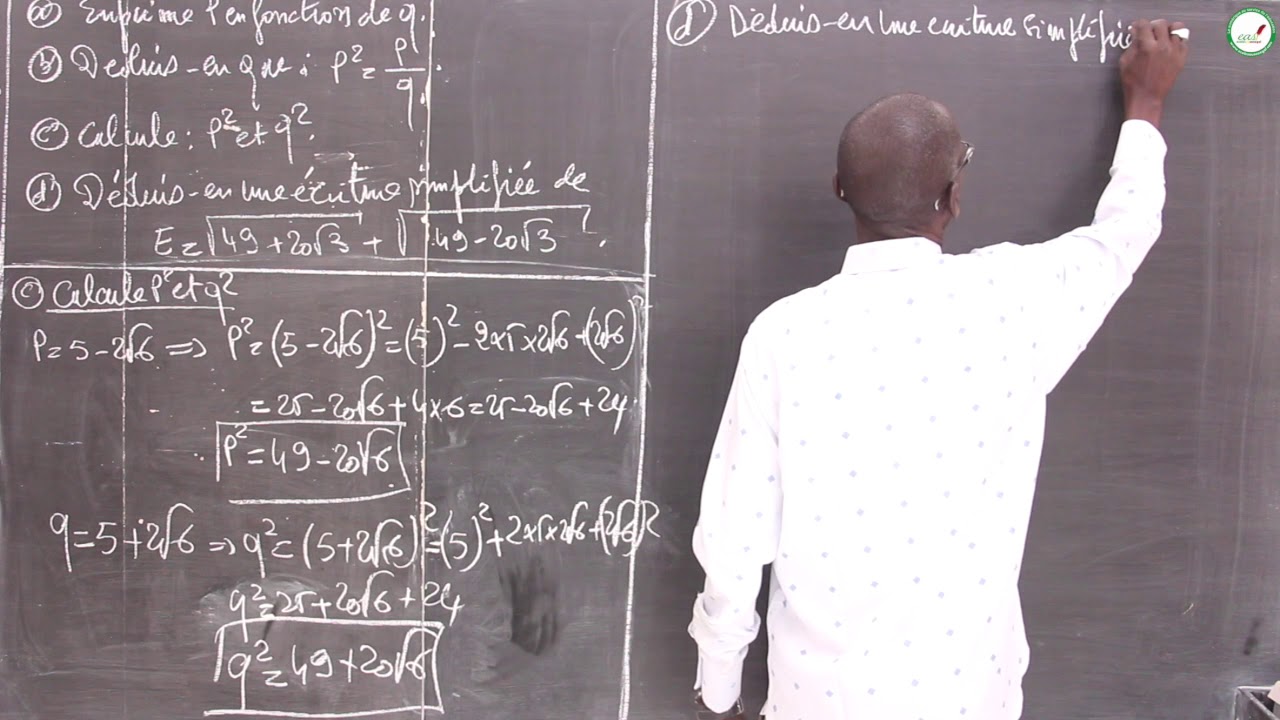 a) Exprime P en fonction de q.
b) Déduis-en que : P² = P/q.
c) Calcule : P² et q².
d) Déduis-en une écriture simplifiée de
E = √49 + 20√3 + √49 - 20√3 .
c) Calcule P² et q²
P = 5 - 2√6 ⇒ P² = (5 - 2√6)² = (5)² - 2×5×2√6 + (2√6)²
= 25 - 20√6 + 4×6 = 25 - 20√6 + 24
P² = 49 - 20√6
q = 5 + 2√6 ⇒ q² = (5 + 2√6)² = (5)² + 2×5×2√6 + (2√6)²
q² = 25 + 20√6 + 24
q² = 49 + 20√6
d) Déduis-en une écriture simplifiée
eas!